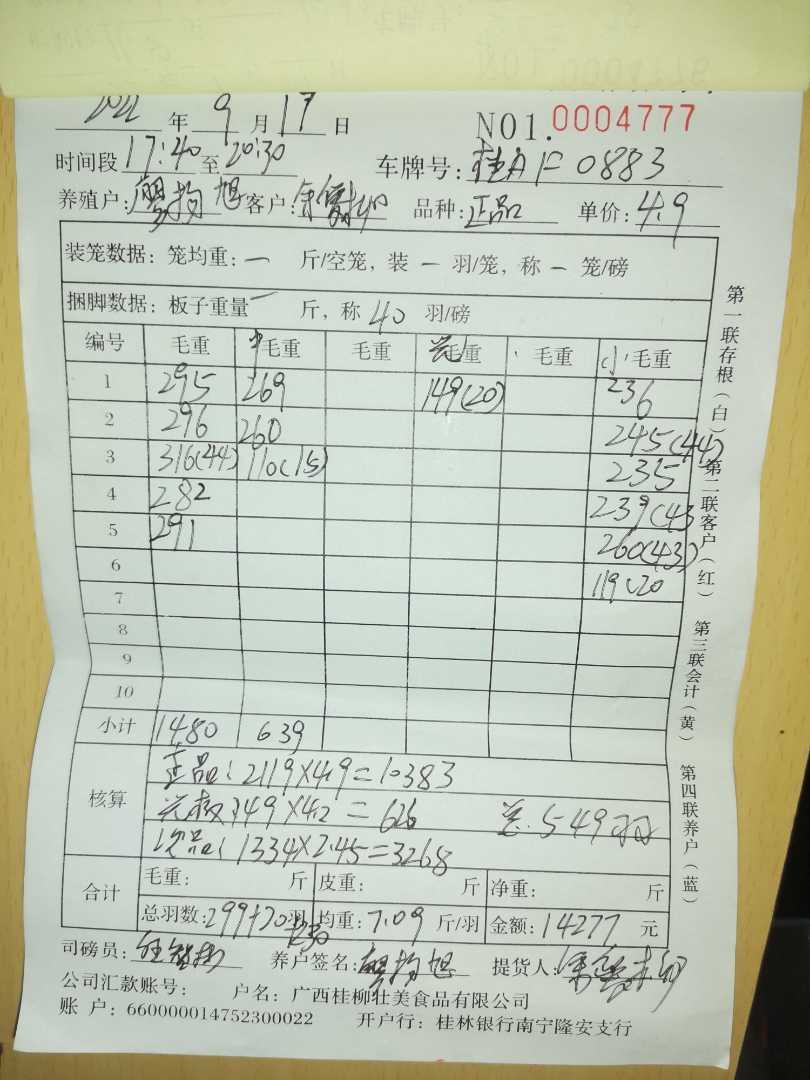 2022 年 9 月 17 日 NO1. 0004777
时间段 17:40 至 20:30 车牌号: 桂A F0883
养殖户: 客户: 品种: 正品 单价: 4.9
装笼数据: 笼均重: 一 斤/空笼, 装 一 羽/笼, 称 一 笼/磅
捆脚数据: 板子重量 一 斤, 称 40 羽/磅
编号 毛重 中毛重 毛重 毛重 毛重 小毛重
1 295 269 149(20) 236
2 296 260 245(44)
3 316(44) 110(15) 235
4 282 239(43
5 291 260(43)
6 119(20
7
8
9
10
小计 1480 639
核算 正品: 2119×4.9=10383
149×4.2=626 总: 549羽
次品: 1334×2.45=3268
合计 毛重: 斤 皮重: 斤 净重: 斤
总羽数: 299+20羽 +230 均重: 7.09 斤/羽 金额: 14277 元
司磅员: 养户签名: 提货人:
公司汇款账号: 户名: 广西桂柳壮美食品有限公司
账 户: 660000014752300022 开户行: 桂林银行南宁隆安支行
第一联存根(白) 第二联客户(红) 第三联会计(黄) 第四联养户(蓝)